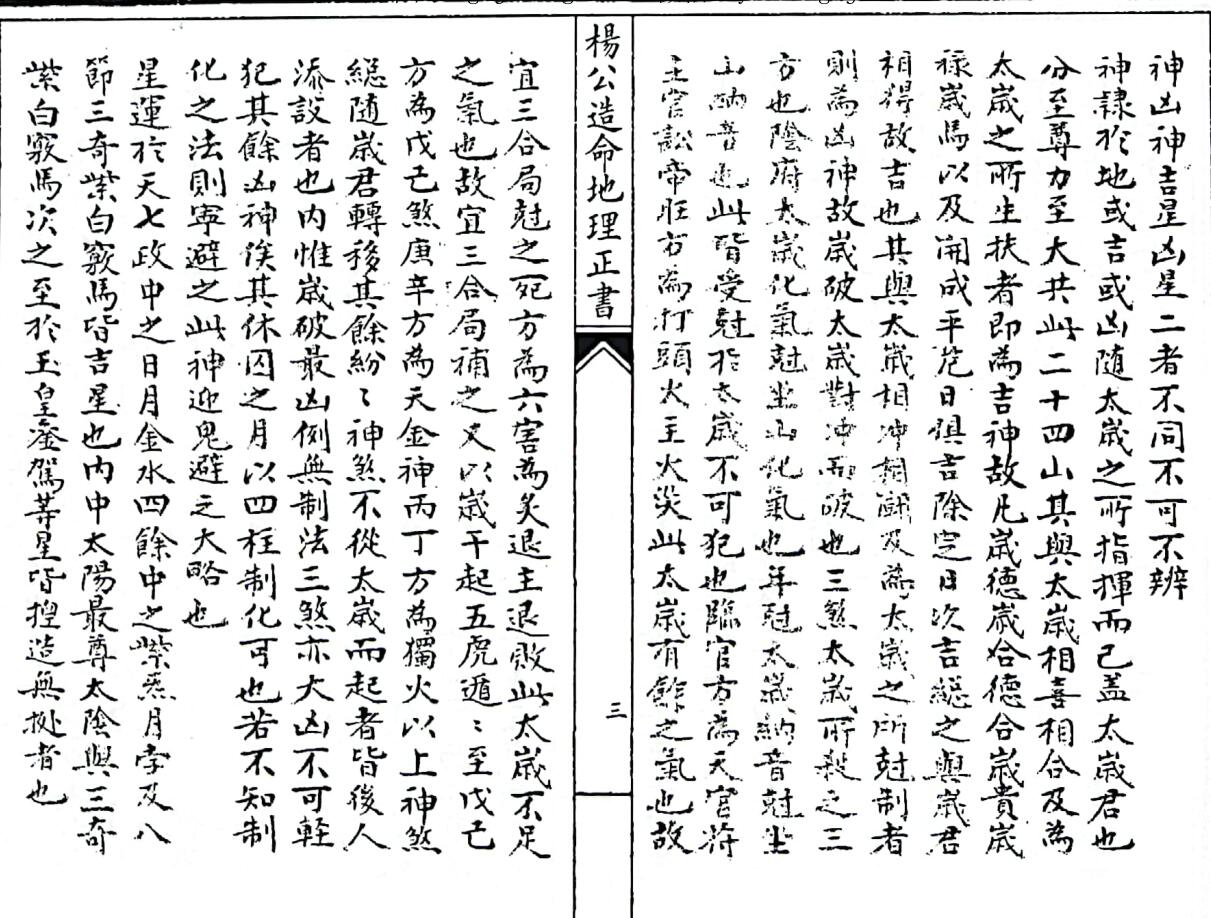 神凶神吉星凶星二者不同不可不辨
神隷於地或吉或凶随太歲之所指揮而已盖太歲君也
分至尊力至大共此二十四山其與太歲相喜相合及為
太歲之所生扶者即為吉神故凡歲德歲合德合歲貴歲
祿歲馬以及開成平危日俱吉除定日次吉緫之與歲君
相得故吉也其與太歲相冲相鬭及為太歲之所尅制者
則為凶神故歲破太歲對冲而破也三煞太歲所殺之三
方也陰府太歲化氣尅坐山化氣也年尅太歲納音尅坐
山納音也此皆受尅於太歲不可犯也臨官方為天官符
主官訟帝旺方為打頭火主火災此太歲有餘之氣也故
楊公造命地理正書
三
宜三合局尅之死方為六害為炙退主退敗此太歲不足
之氣也故宜三合局補之又以歲干起五虎遁〻至戊己
方為戊己煞庚辛方為天金神丙丁方為獨火以上神煞
緫随歲君轉移其餘紛〻神煞不從太歲而起者皆後人
添設者也内惟歲破最凶例無制法三煞亦大凶不可軽
犯其餘凶神俟其休囚之月以四柱制化可也若不知制
化之法則寧避之此神迎鬼避之大略也
星運於天七政中之日月金水四餘中之紫炁月孛及八
節三奇紫白竅馬皆吉星也内中太陽最尊太陰與三奇
紫白竅馬次之至於玉皇鑾駕等星皆揑造無㨿者也